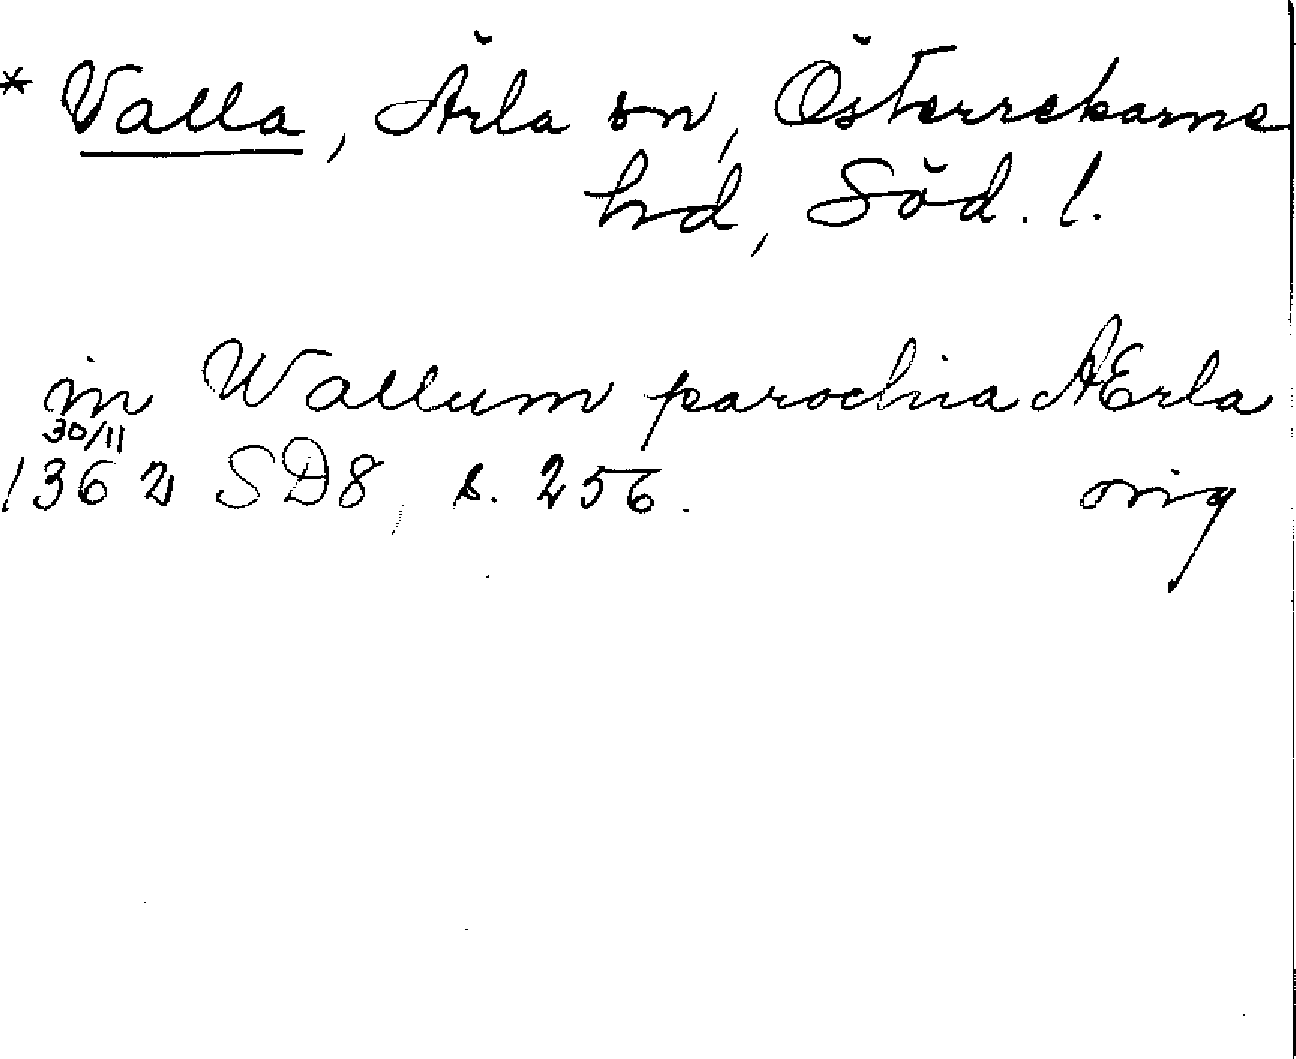 * Valla, Ärla sn, Österrekarne
hd, Söd. l.
in Wallum parochia AErla
30/11
1362 SD8, s. 256. orig